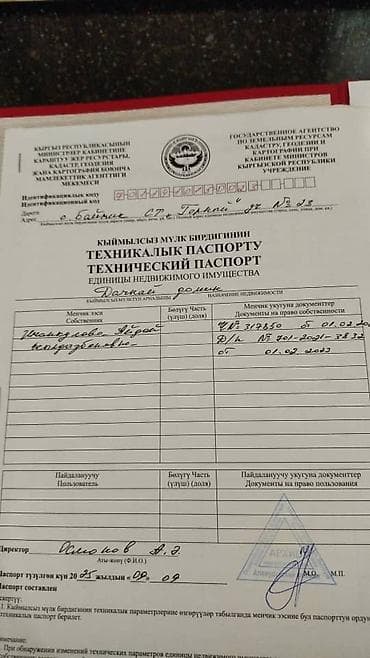 КЫРГЫЗ РЕСПУБЛИКАСЫНЫН
МИНИСТРЛЕР КАБИНЕТИНЕ
КАРАШТУУ ЖЕР РЕСУРСТАРЫ,
КАДАСТР, ГЕОДЕЗИЯ
ЖАНА КАРТОГРАФИЯ БОЮНЧА
МАМЛЕКЕТТИК АГЕНТТИГИ
МЕКЕМЕСИ
ГОСУДАРСТВЕННОЕ АГЕНТСТВО
ПО ЗЕМЕЛЬНЫМ РЕСУРСАМ
КАДАСТРУ, ГЕОДЕЗИИ И
КАРТОГРАФИИ ПРИ
КАБИНЕТЕ МИНИСТРОВ
КЫРГЫЗСКОЙ РЕСПУБЛИКИ
УЧРЕЖДЕНИЕ
Идентификациялык коду
Идентификационный код
Дареги
Адрес с. Байтик СТ "Горный" уч № 28
КЫЙМЫЛСЫЗ МҮЛК БИРДИГИНИН
ТЕХНИКАЛЫК ПАСПОРТУ
ТЕХНИЧЕСКИЙ ПАСПОРТ
ЕДИНИЦЫ НЕДВИЖИМОГО ИМУЩЕСТВА
Дачный домик
НАЗНАЧЕНИЕ НЕДВИЖИМОСТИ
Менчик ээси
Собственник
Бөлүгү Часть
(үлүш) (доля)
Менчик укугунун документтер
Документы на право собственности
№ 317850 от 01.02.20
№ 701-2021-3832
от 01.02.2023
Пайдалануучу
Пользователь
Бөлүгү Часть
(үлүш) (доля)
Пайдалануу укугунун документтер
Документы на право пользования
АРХИВ
Директор Осмонов А.Э
Аты-жөнү (Ф.И.О.)
М.О. М.П.
Паспорт түзүлгөн күн 2025 жылдын «09» 09
Паспорт составлен
скертүү:
1. Кыймылсыз мүлк бирдигинин техникалык параметрлерине өзгөрүүлөр табылганда менчик ээсине бул паспорттун ордун
техникалык паспорт берилет.
римечание:
При обнаружении изменений технических параметров единицы недвижимого